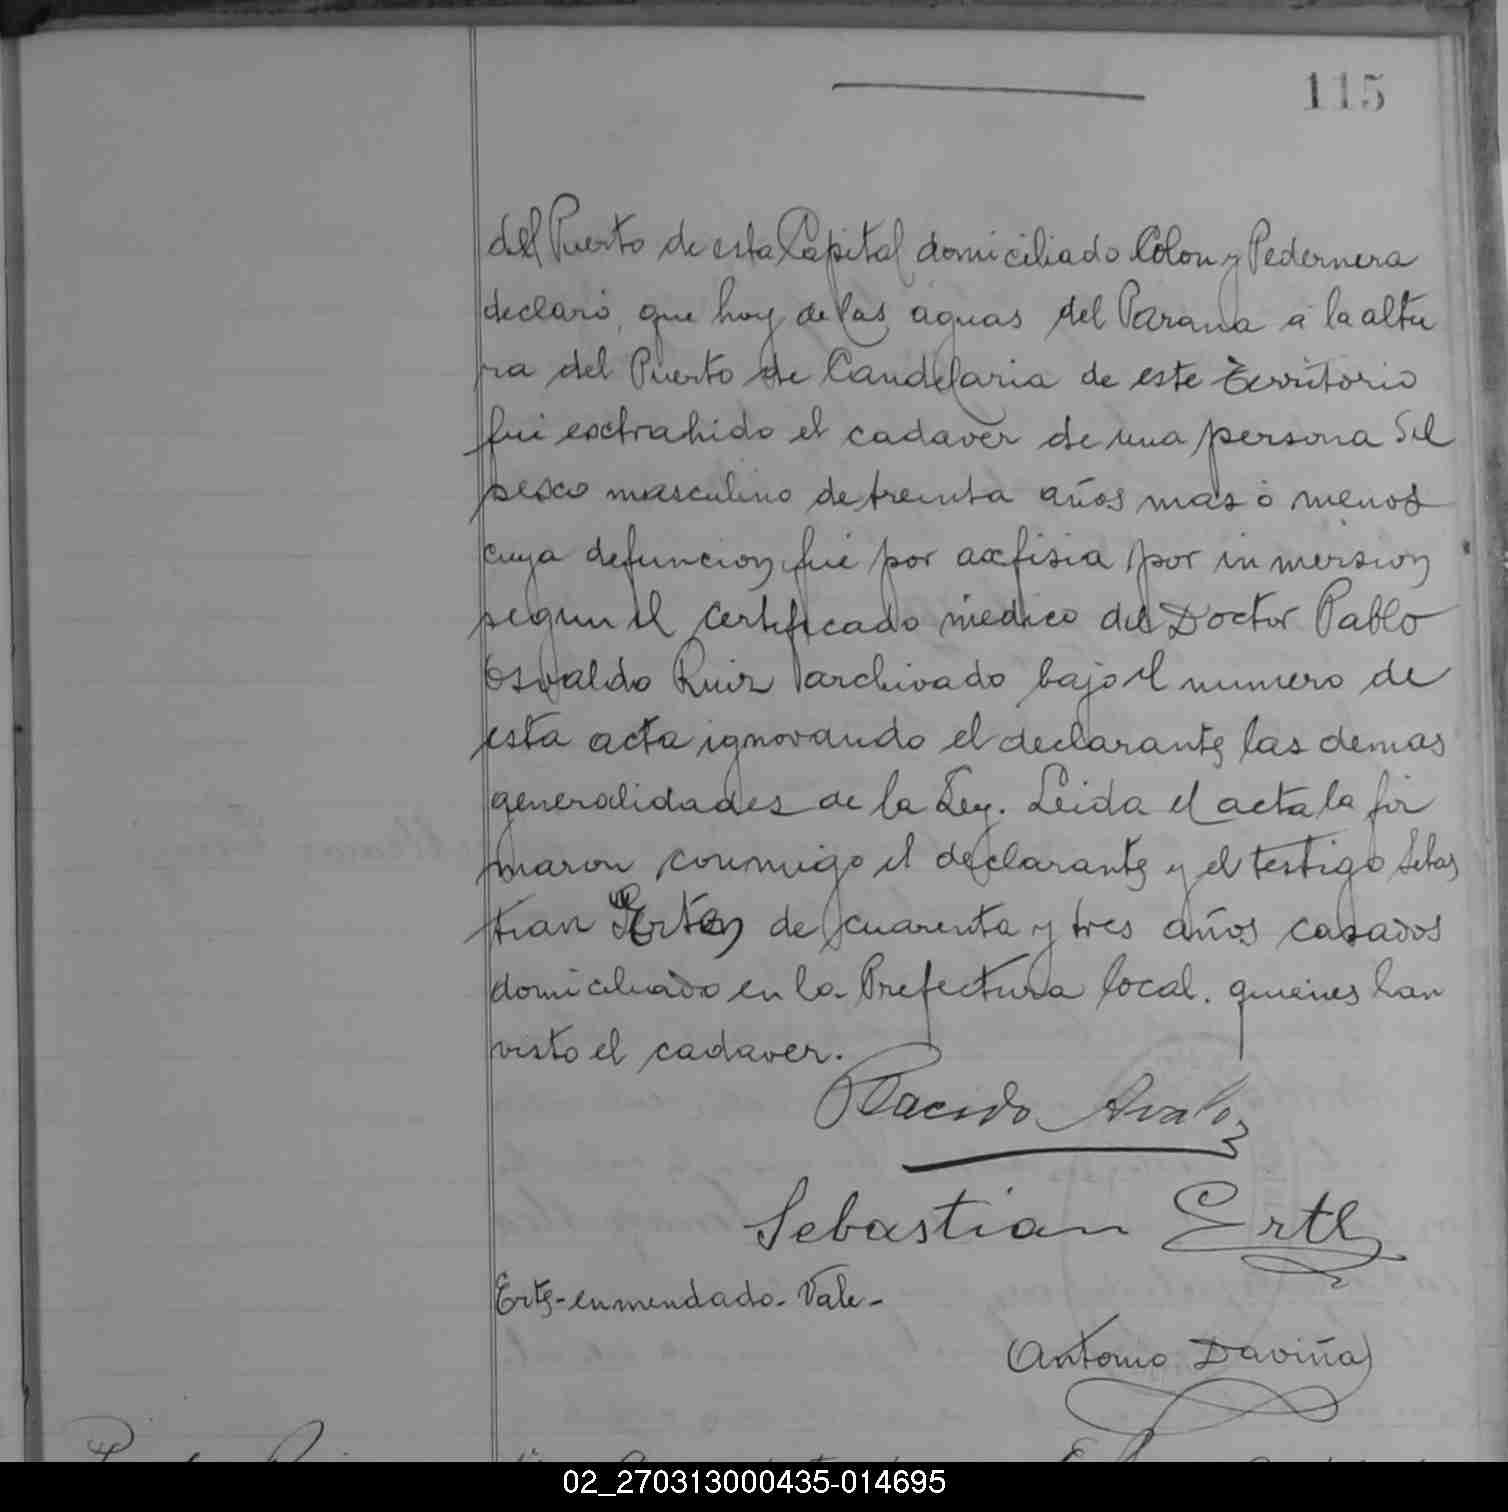 115
del Puerto de esta Capital domiciliado Colon y Pedernera
declaró, que hoy de las aguas del Parana a la altu
ra del Puerto de Candelaria de este territorio
fué exctrahido el cadaver de una persona del
sexo masculino de treinta años mas ó menos
cuya defuncion fué por axfisia por in mersion
segun el certificado médico del Doctor Pablo
Osvaldo Ruiz archivado bajo el numero de
esta acta ignorando el declarante las demas
generalidades de la Ley. Leida el acta la fir
maron conmigo el declarante y el testigo Sebas
tian de cuarenta y tres años casados
domiciliado en la Prefectura local. quienes han
visto el cadaver.
Placido Avaloz
Sebastian Ertl
enmendado - Vale -
Antonio Daviña
02_270313000435-014695